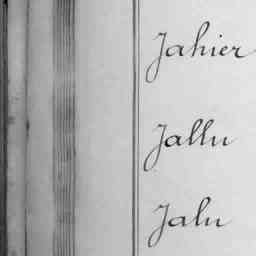 Jahier
Jallu
Jalu